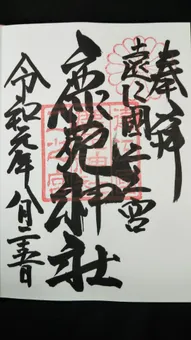 奉拝
遠江國二之宮
鹿苑神社
令和元年八月